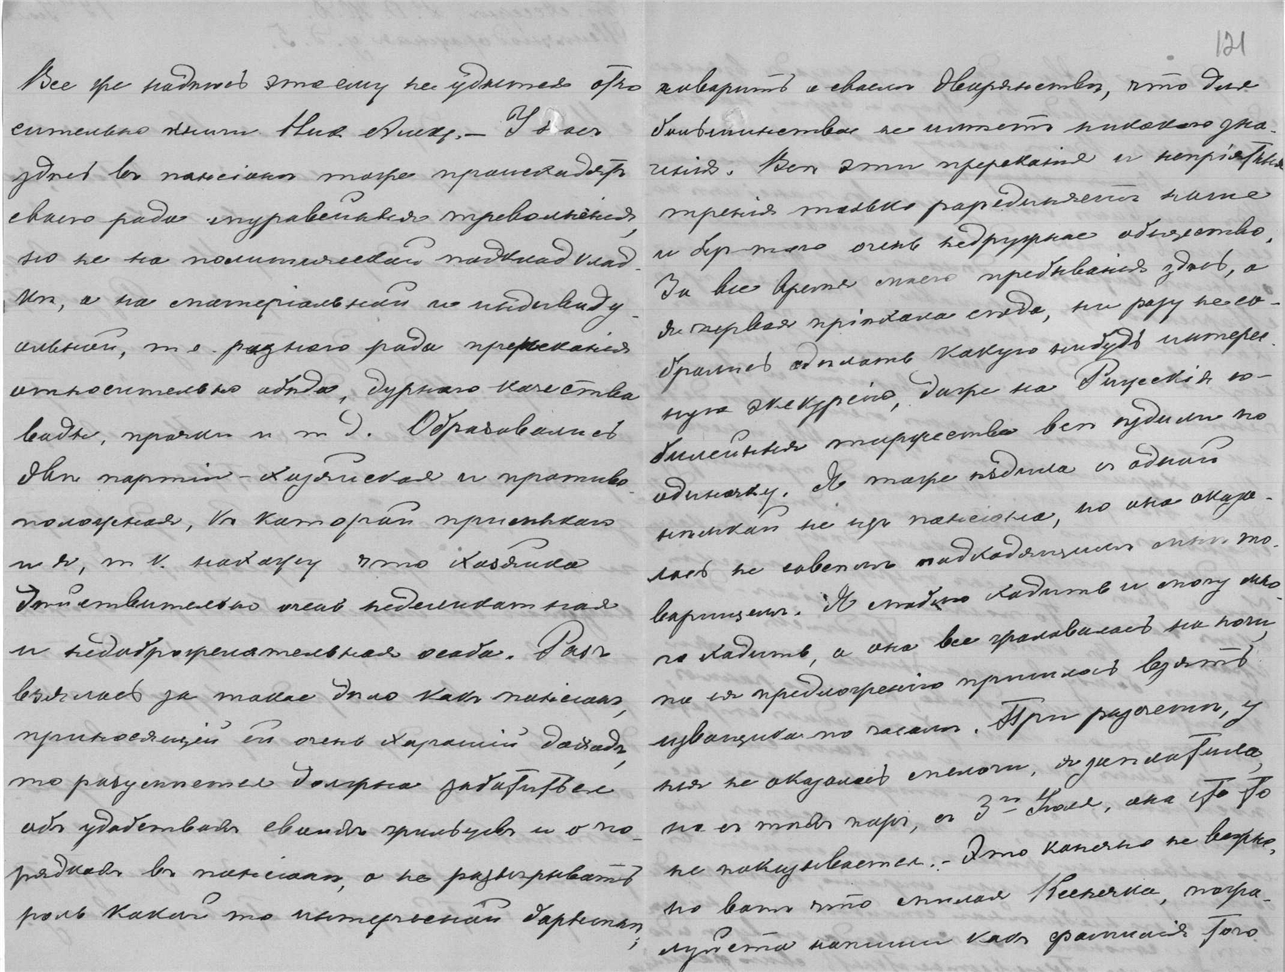 121
Все же надѣюсь это ему не удастся отно
сительно книги Ник. Алекс. – У насъ
здѣсь въ пансіонѣ тоже происходятъ
своего рода муравейныя треволненія,
но не на политической подкладклад-
кѣ, а на матеріальной и индивиду-
альной, т е. разнаго рода пререканія
относительно обѣда, дурного качества
воды, прачки и т д. Образовались
двѣ партіи – хозяйская и противо-
положная, къ которой примыкаю
и я, т. к. нахожу что хозяйка
дѣйствительно очень неделикатная
и недоброжелательная особа. Разъ
взялась за такое дѣло какъ пансіонъ,
приносящій ей очень хорошій доходъ,
то разумѣется должна заботиться
объ удобствахъ своихъ жильцовъ и о по-
рядкахъ въ пансіонѣ, а не разыгрывать
роль какой то интересной барыньки,
говорить о своемъ дворянствѣ, что для
большинства не имѣетъ никакого зна-
ченія. Всѣ эти пререканія и непріятныя
тренія только разъединяетъ наше
и безъ того очень недружное общество.
За все время моего пребыванія здѣсь, а
я первая пріѣхала сюда, ни разу не со-
брались сдѣлать какую нибудь интерес.
ную экскурсію, даже на Русскія ю-
билейныя торжества всѣ ѣздили по
одиночкѣ. Я тоже ѣздила съ одной
нѣмкой не изъ пансіона, но она оказа-
лась не совсѣмъ подходящимъ мнѣ то-
варищемъ. Я люблю ходить и могу мно-
го ходить, а она все жаловалась на ноги,
по ея предложенію пришлось взять
извощика по часамъ. При разсчетѣ, у
нея не оказалось мелочи, я заплатила,
но съ тѣхъ поръ, съ 3го Іюля, она что то
не показывается. – Это конечно не важно,
но вотъ что милая Ксенечка, пожа-
луйста напиши какъ фамилія того